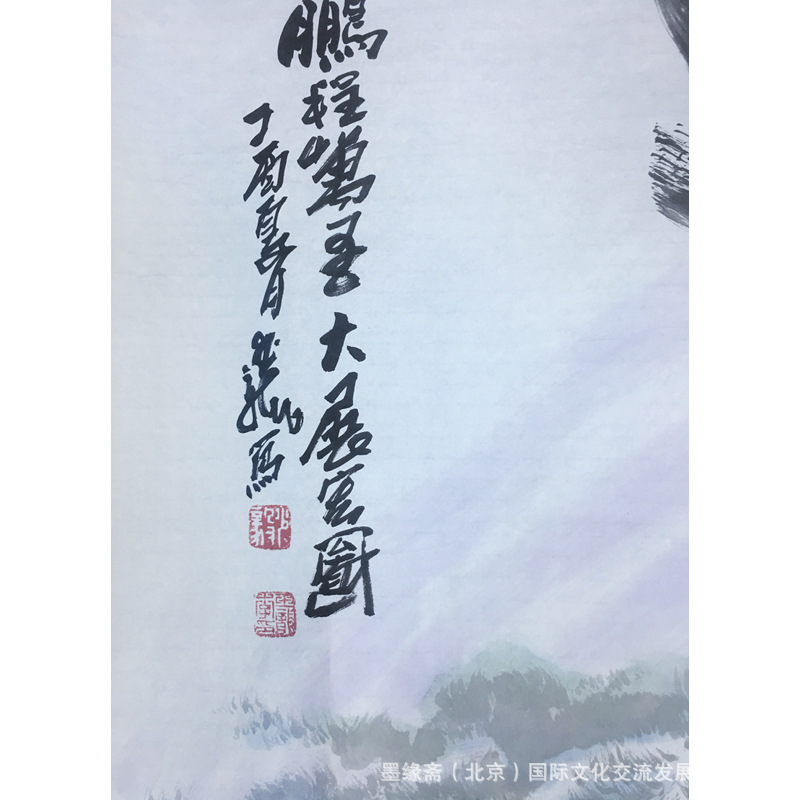 鵬程萬里大展宏圖
丁酉夏月
寫
墨缘斋（北京）国际文化交流发展